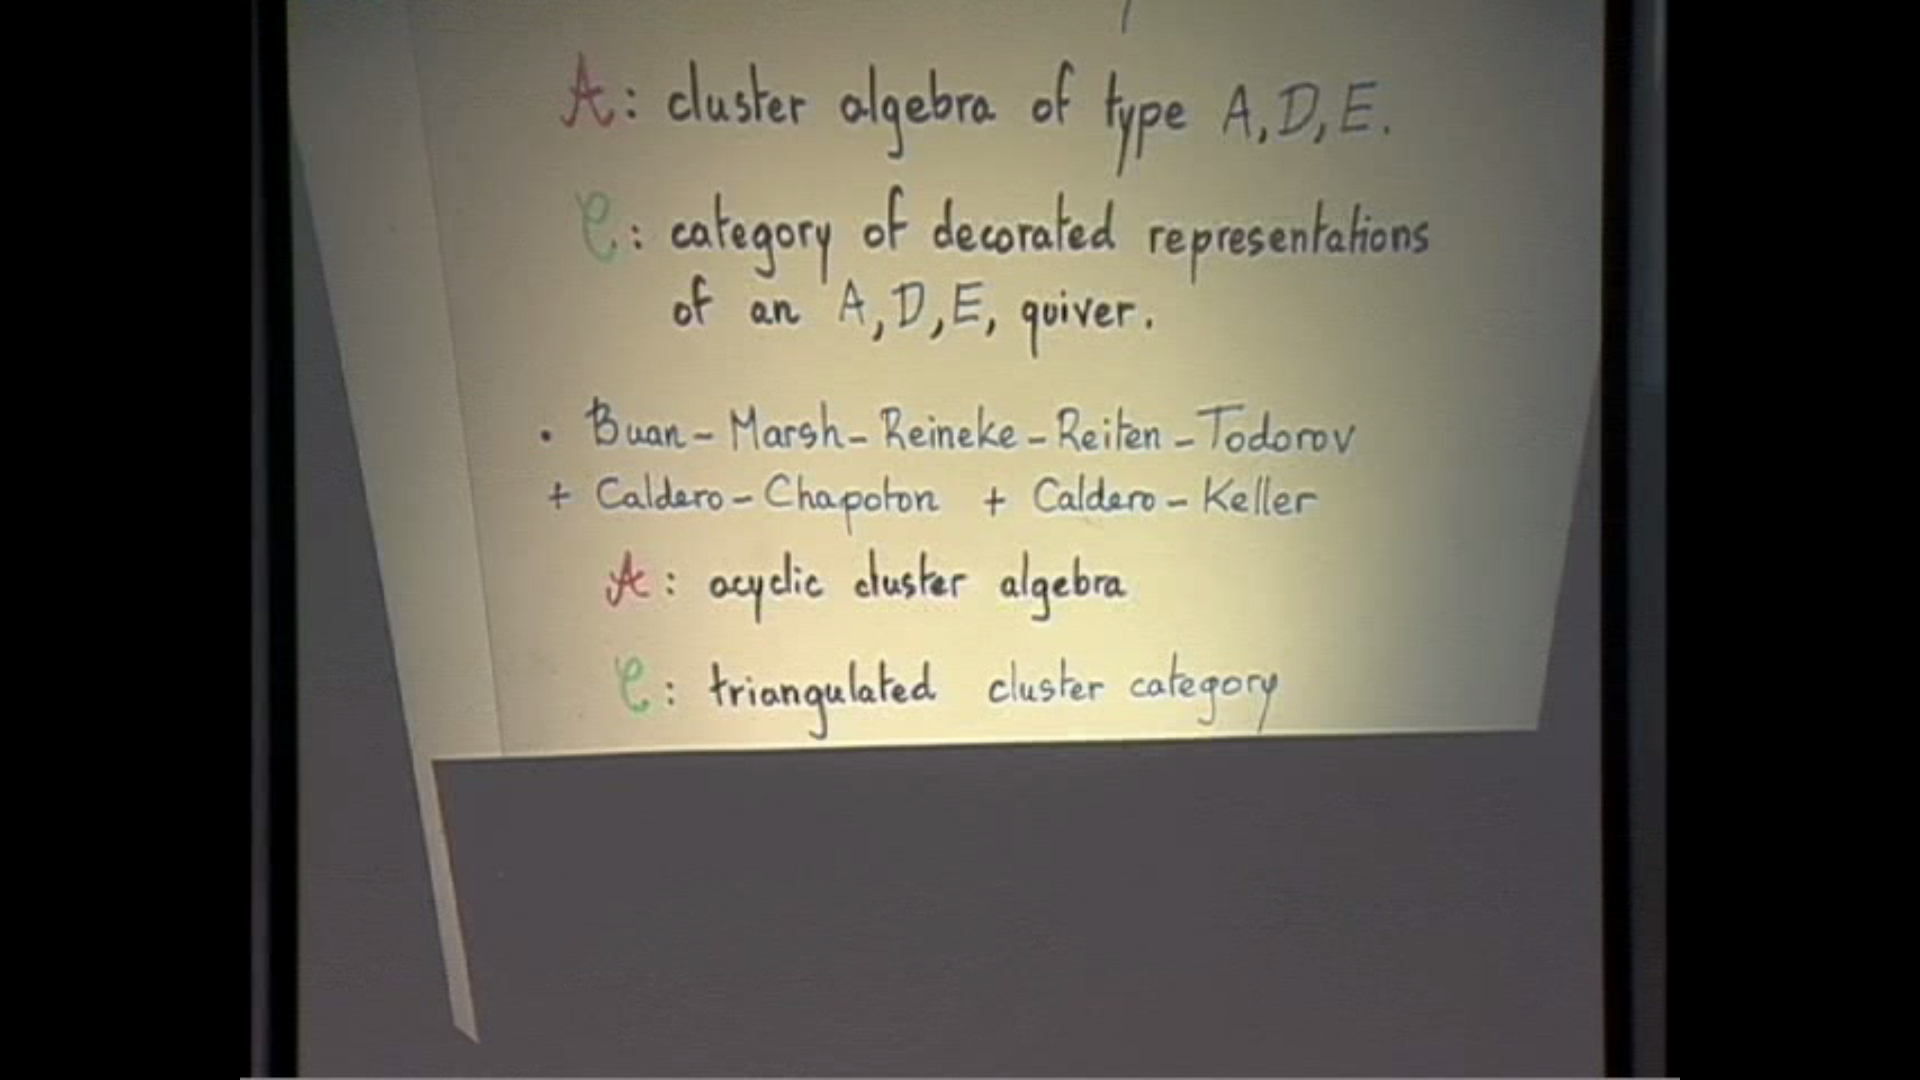 A: cluster algebra of type A, D, E.
C: category of decorated representations
of an A, D, E, quiver.
• Buan - Marsh - Reineke - Reiten - Todorov
+ Caldero - Chapoton + Caldero - Keller
A: acyclic cluster algebra
C: triangulated cluster category